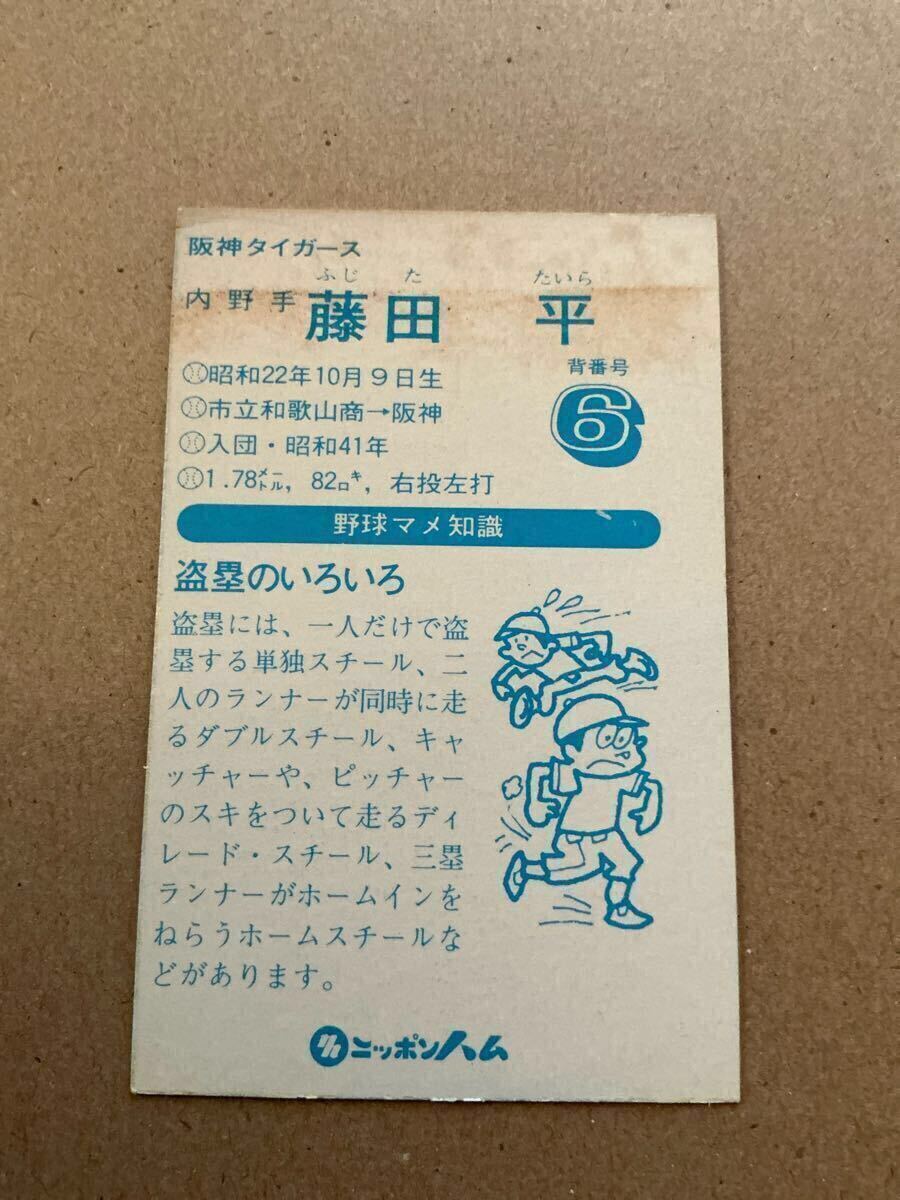 阪神タイガース
ふじ た たいら
内野手 藤田 平
昭和22年10月9日生
背番号
6
市立和歌山商→阪神
入団・昭和41年
1.78メートル, 82キロ, 右投左打
野球マメ知識
盗塁のいろいろ
盗塁には、一人だけで盗
塁する単独スチール、二
人のランナーが同時に走
るダブルスチール、キャ
ッチャーや、ピッチャー
のスキをついて走るディ
レード・スチール、三塁
ランナーがホームインを
ねらうホームスチールな
どがあります。
ニッポンハム